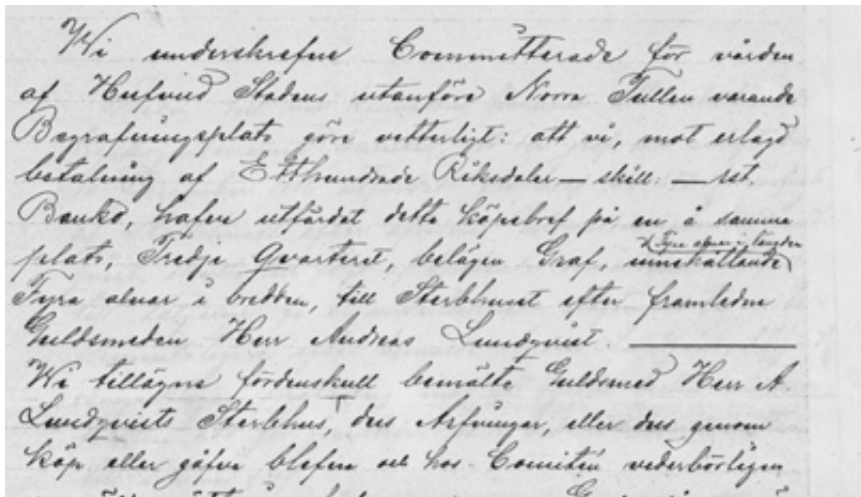 Wi underskrefne Committerade för vården
af Hufvud Stadens utanföre Norra Tullen varande
Begrafningsplats göre vetterligt: att vi, mot erlagd
betalning af Etthundrade Riksdaler — skill. — rst.
Banko, hafve utfärdat detta köpebref på en å samma
plats, Tredje Qvarteret, belägen Graf, innehållande
Fyra alnar i längden
Fyra alnar i bredden, till Sterbhuset efter framledne
Guldsmeden Herr Andreas Lundqvist.
Wi tillägne fördenskull bemälte Guldsmed Herr A.
Lundqvists Sterbhus, dess Arfvingar, eller den genom
köp eller gåfva blefne och hos Comitén vederbörligen